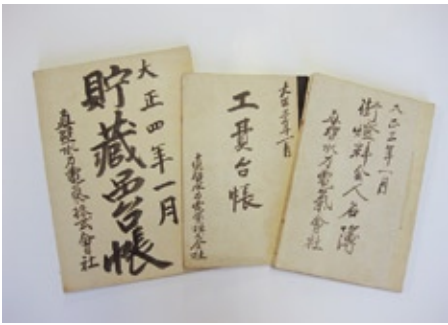 大正四年一月
貯藏品台帳
真壁水力電氣株式会社
大正三年一月
工具台帳
真壁水力電気株式会社
大正三年一月
街燈料金人名簿
真壁水力電氣會社